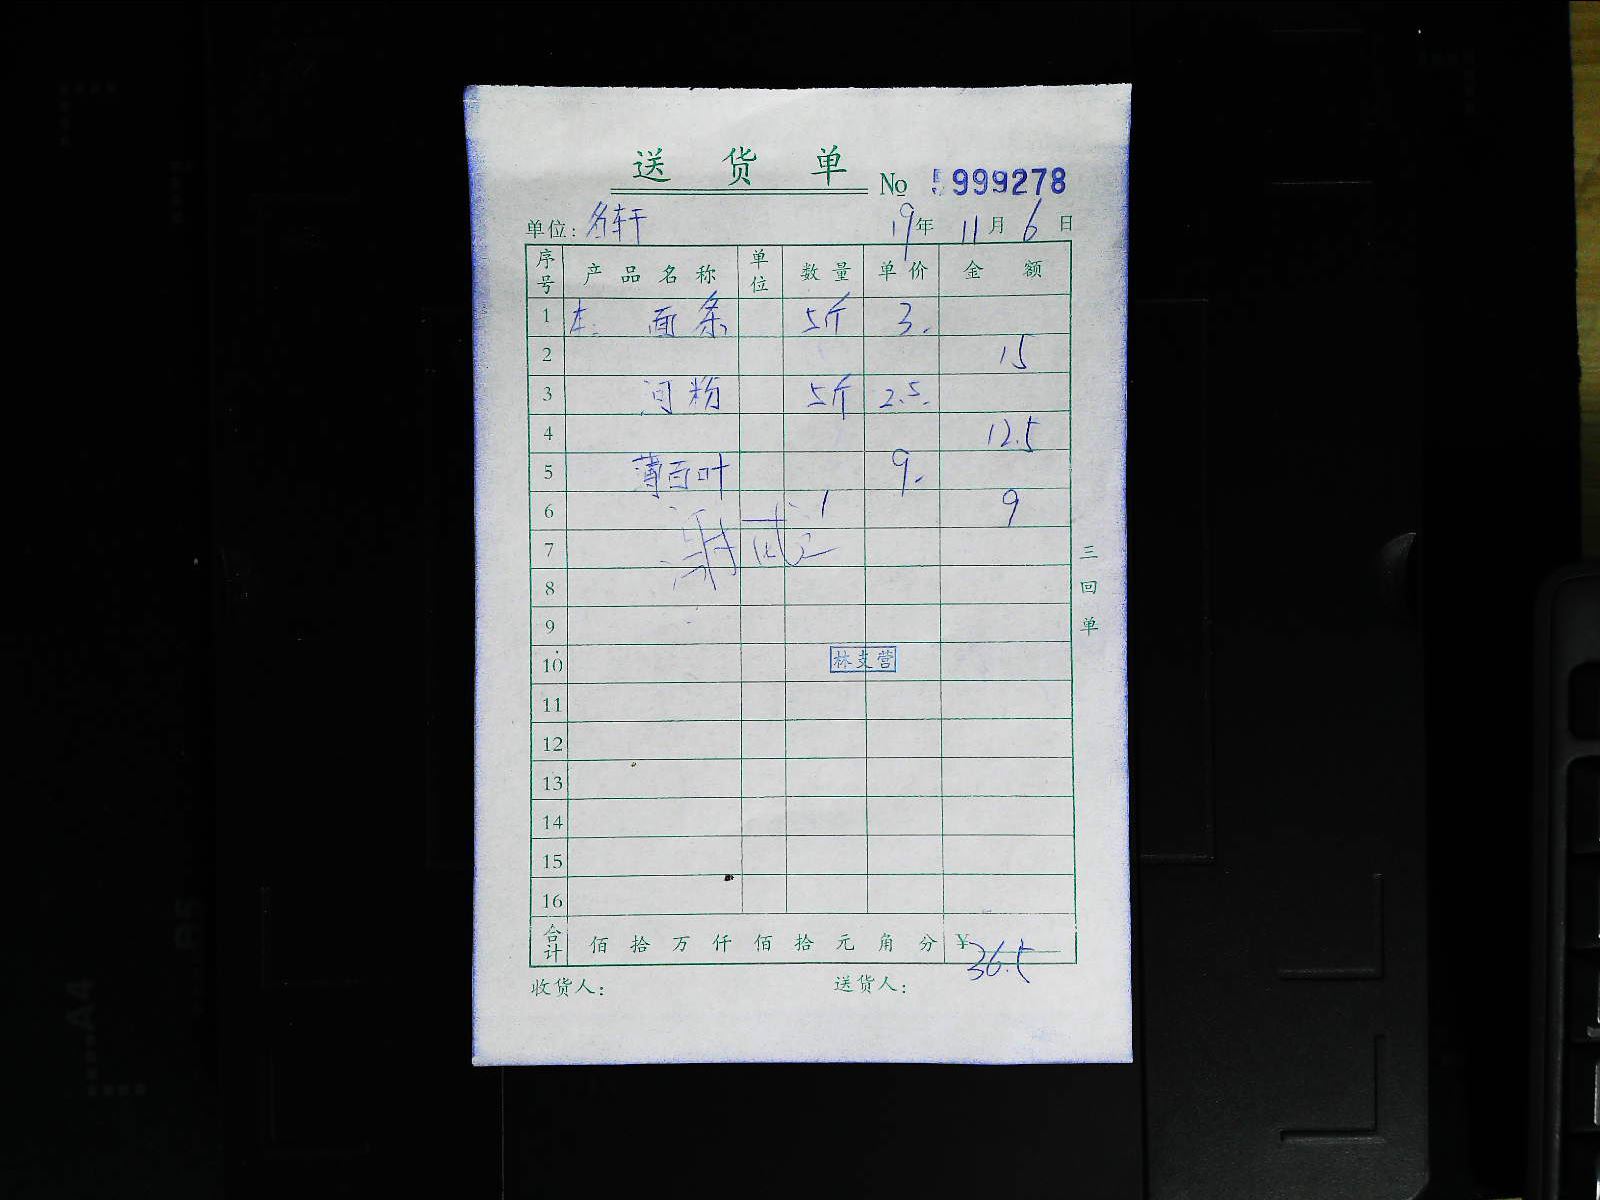 送货单
No 5999278
单位: 名轩 19年 11月 6日
序号 产品名称 单位 数量 单价 金额
1 面条 5斤 3.
2 15
3 河粉 5斤 2.5.
4 12.5
5 薄百叶 9.
6 1 9
7
8
9
10 林支营
11
12
13
14
15
16
合计 佰拾万仟佰拾元角分 ¥36.5
收货人: 送货人:
三回单